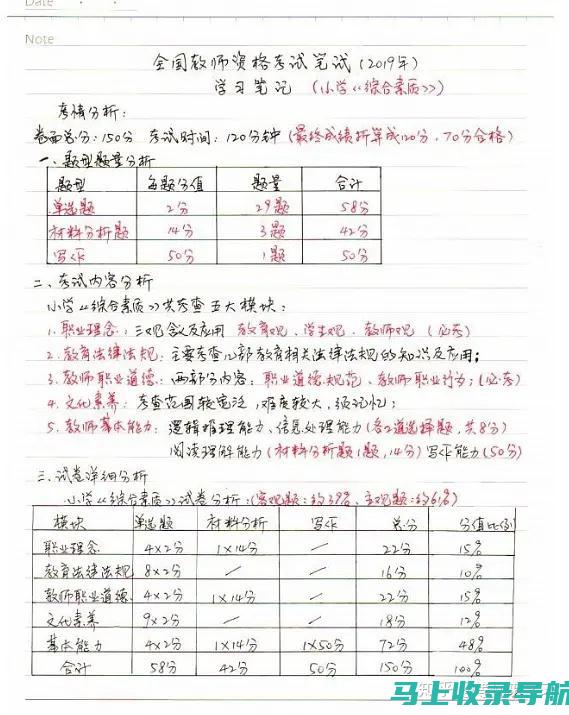 Date
Note
全国教师资格考试笔试(2019年)
学习笔记 (小学《综合素质》)
考情分析:
卷面总分:150分 考试时间:120分钟(最终成绩折算成120分,70分合格)
一、题型题量分析
题型 每题分值 题量 合计
单选题 2分 29题 58分
材料分析题 14分 3题 42分
写作 50分 1题 50分
二、考试内容分析
小学《综合素质》共考查五大模块:
1. 职业理念:三观含义及应用 教育观、学生观、教师观 (必考)
2. 教育法律法规:主要考查几部教育相关法律法规的知识及应用;
3. 教师职业道德:两部分内容:职业道德规范、教师职业行为;(必考)
4. 文化素养:考查范围较宽泛,难度较大,须记忆;
5. 教师基本能力:逻辑推理能力、信息处理能力(各2道选择题,共8分)
阅读理解能力(材料分析题1题,14分)写作能力(50分)
三、试卷详细分析
小学《综合素质》试卷分析:(客观题:约39%、主观题:约61%)
模块 单选题 材料分析 写作 总分 分值比例
职业理念 4×2分 1×14分 / 22分 15%
教育法律法规 8×2分 / / 16分 10%
教师职业道德 4×2分 1×14分 / 22分 15%
文化素养 9×2分 / / 18分 12%
基本能力 4×2分 1×14分 1×50分 72分 48%
合计 58分 42分 50分 150分 100%
马上收录导航